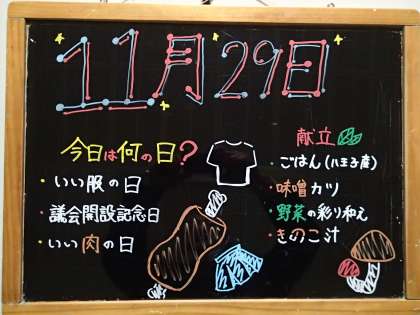 11月29日
今日は何の日?
・いい服の日
・議会開設記念日
・いい肉の日
献立
・ごはん(八王子産)
・味噌カツ
・野菜の彩り和え
・きのこ汁